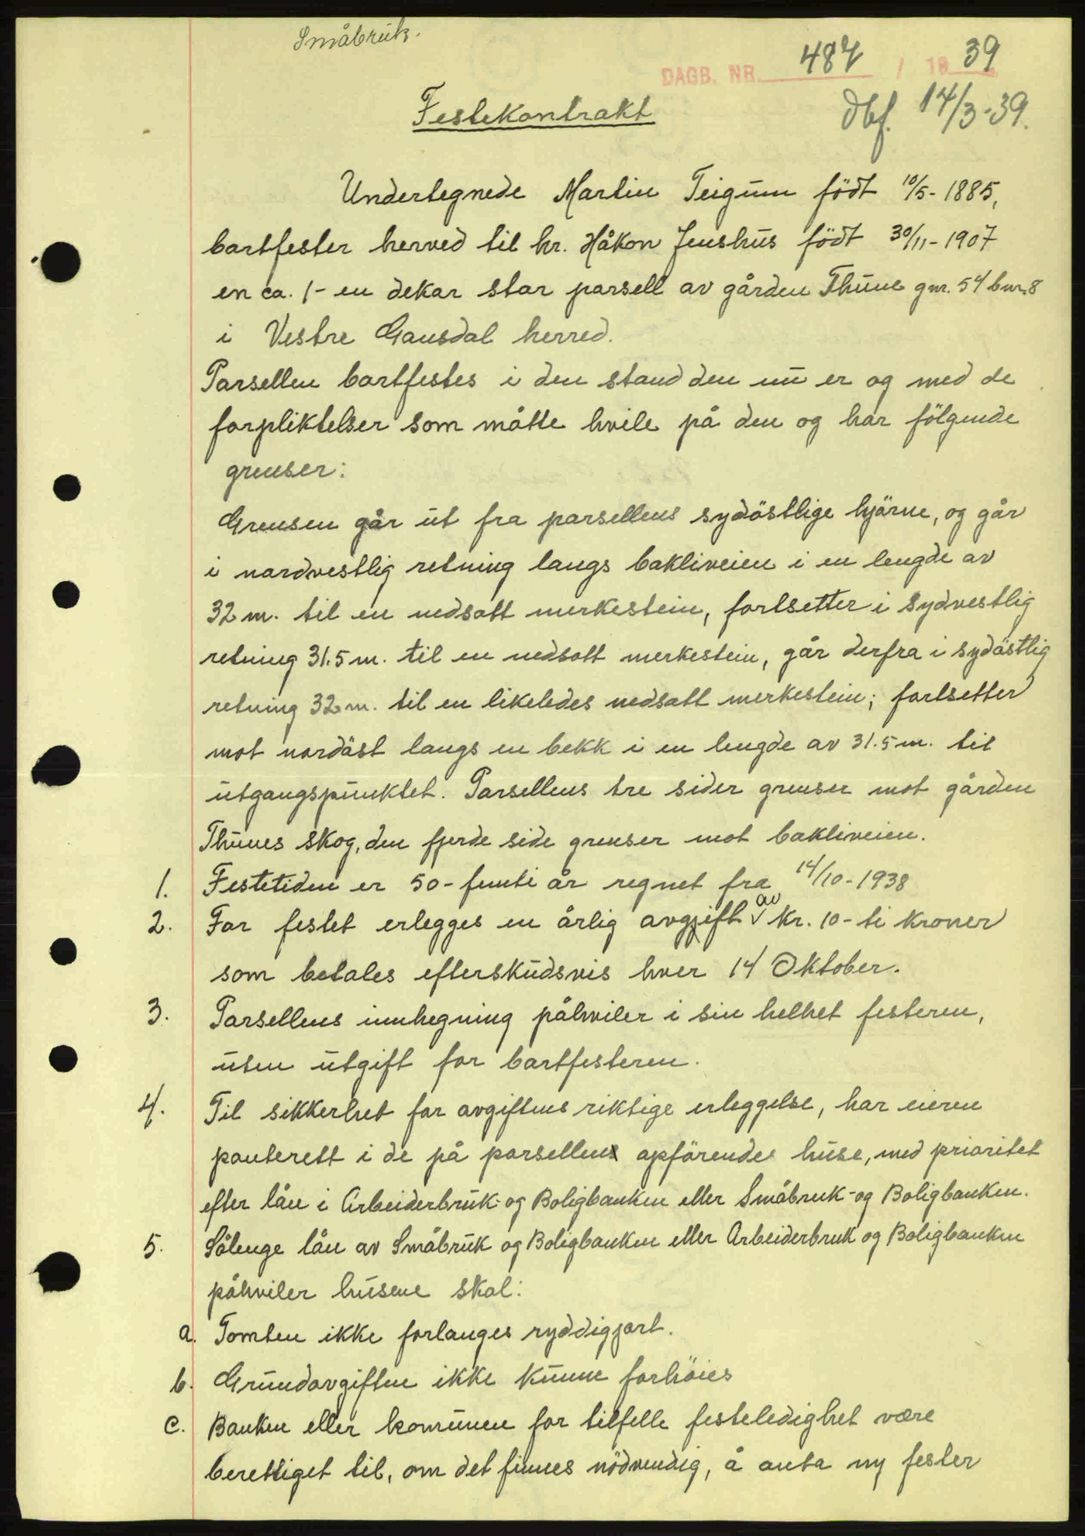 Småbruk.
DAGB. NR. 487 / 1939
dbf. 14/3-39.
Festekontrakt
Undertegnede Martin Teigum födt 10/5-1885,
bortfester herved til hr. Håkon Jenshus födt 30/11-1907
en ca. 1- en dekar stor parsell av gården Thune gnr. 54 bnr. 8
i Vestre Gausdal herred.
Parsellen bortfestes i den stand den nu er og med de
forpliktelser som måtte hvile på den og har fölgende
grenser:
Grensen går ut fra parsellens sydöstlige hjörne, og går
i nordvestlig retning langs bakliveien i en lengde av
32 m. til en nedsatt merkestein, fortsetter i sydvestlig
retning 31.5 m. til en nedsatt merkestein, går derfra i sydöstlig
retning 32 m. til en likeledes nedsatt merkestein; fortsetter
mot nordöst langs en bekk i en lengde av 31.5 m. til
utgangspunktet. Parsellens tre sider grenser mot gården
Thunes skog, den fjerde side grenser mot bakliveien.
1. Festetiden er 50- femti år regnet fra 14/10-1938
2. For festet erlegges en årlig avgjift av kr. 10- ti kroner
som betales efterskudsvis hver 14 Oktober.
3. Parsellens innhegning påhviler i sin helhet festeren,
uten utgift for bortfesteren.
4. Til sikkerhet for avgiftens riktige erleggelse, har eieren
panterett i de på parsellen opförende huse, med prioritet
efter lån i Arbeiderbruk- og Boligbanken eller Småbruk- og Boligbanken.
5. Sålenge lån av Småbruk og Boligbanken eller Arbeiderbruk og Boligbanken
påhviler husene skal:
a. Tomten ikke forlanges ryddiggjort.
b. Grundavgiften ikke kunne forhöies
c. Banken eller komunen for tilfelle festeledighet være
berettiget til, om det finnes nödvendig, å anta ny fester